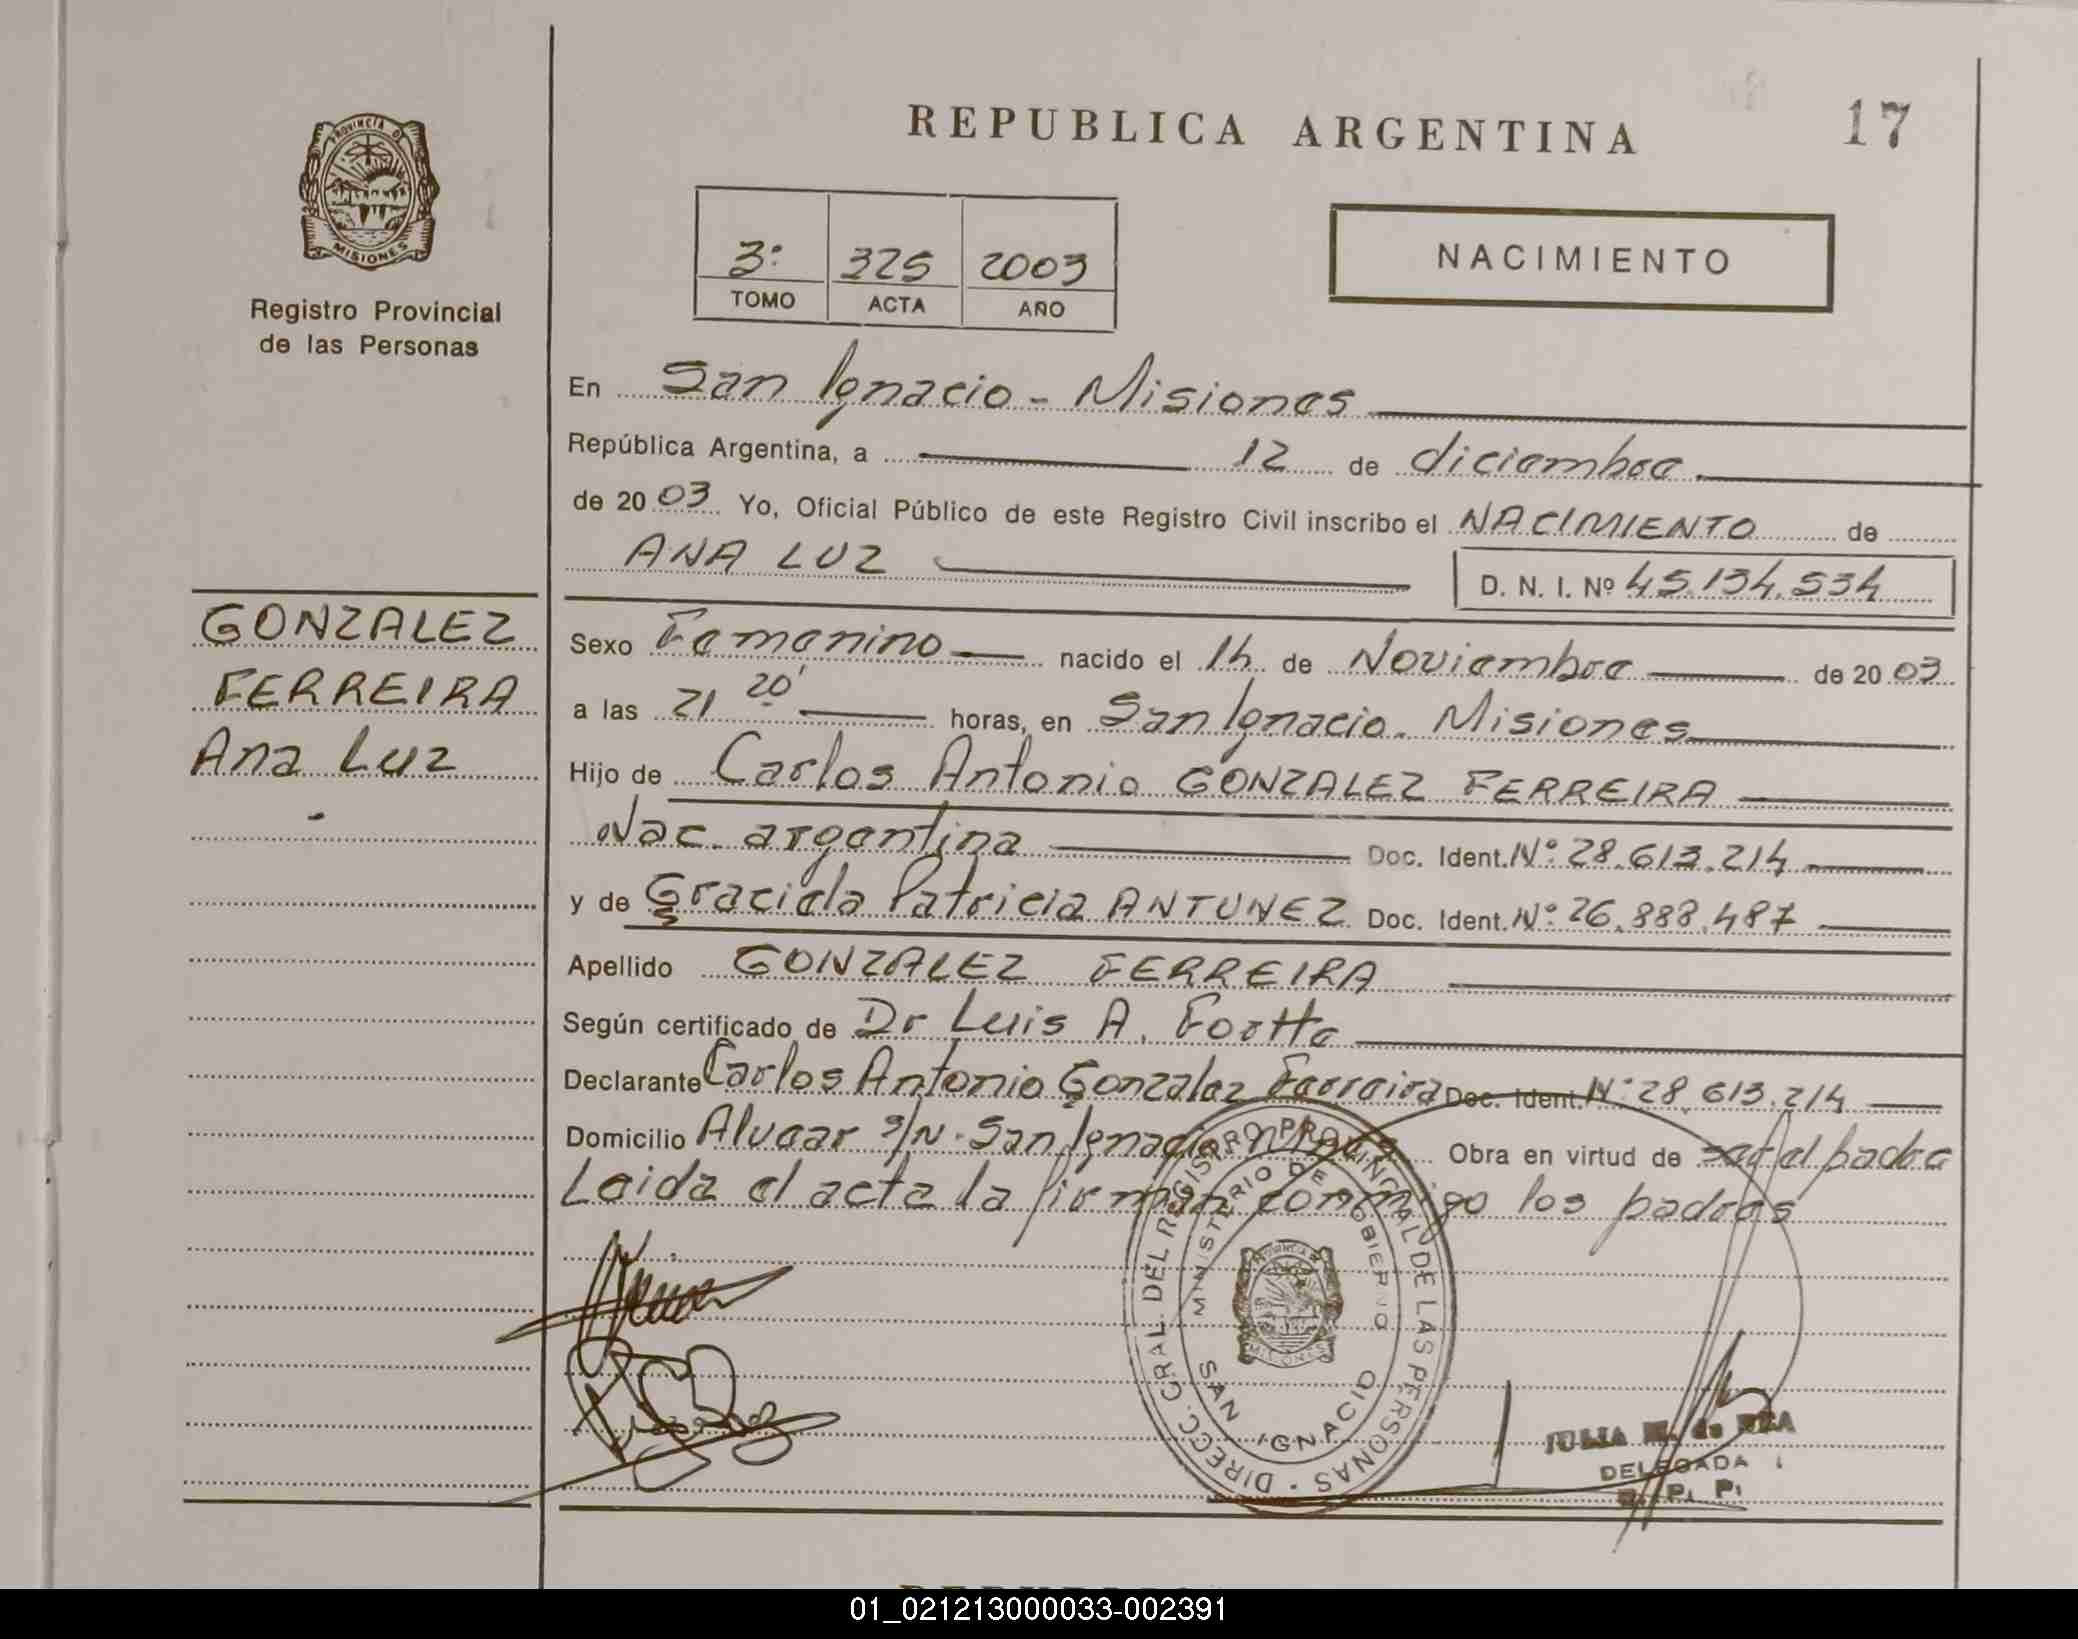 REPUBLICA ARGENTINA
17
PROVINCIA DE
MISIONES
Registro Provincial
de las Personas
3º 325 2003
TOMO ACTA AÑO
NACIMIENTO
En San Ignacio - Misiones
República Argentina, a 12 de diciembre
de 2003 Yo, Oficial Público de este Registro Civil inscribo el NACIMIENTO de
ANA LUZ
D. N. I. Nº 45.134.534
GONZALEZ
FERREIRA
Ana Luz
Sexo Femenino nacido el 14 de Noviembre de 2003
a las 21 20' horas, en San Ignacio. Misiones
Hijo de Carlos Antonio GONZALEZ FERREIRA
Nac. argentina Doc. Ident. Nº 28.613.214
y de Graciela Patricia ANTUNEZ Doc. Ident. Nº 26.888.487
Apellido GONZALEZ FERREIRA
Según certificado de Dr Luis A.
Declarante Carlos Antonio Gonzalez Ferreira Doc. Ident. Nº 28.613.214
Domicilio Alvear s/N. San Ignacio Mnes. Obra en virtud de ser el padre
Leida el acta la firman conmigo los padres
DIRECC. GRAL. DEL REGISTRO PROVINCIAL DE LAS PERSONAS
MINISTERIO DE GOBIERNO
SAN IGNACIO
MISIONES
JULIA de
DELEGADA
R. P. P.
01_021213000033-002391